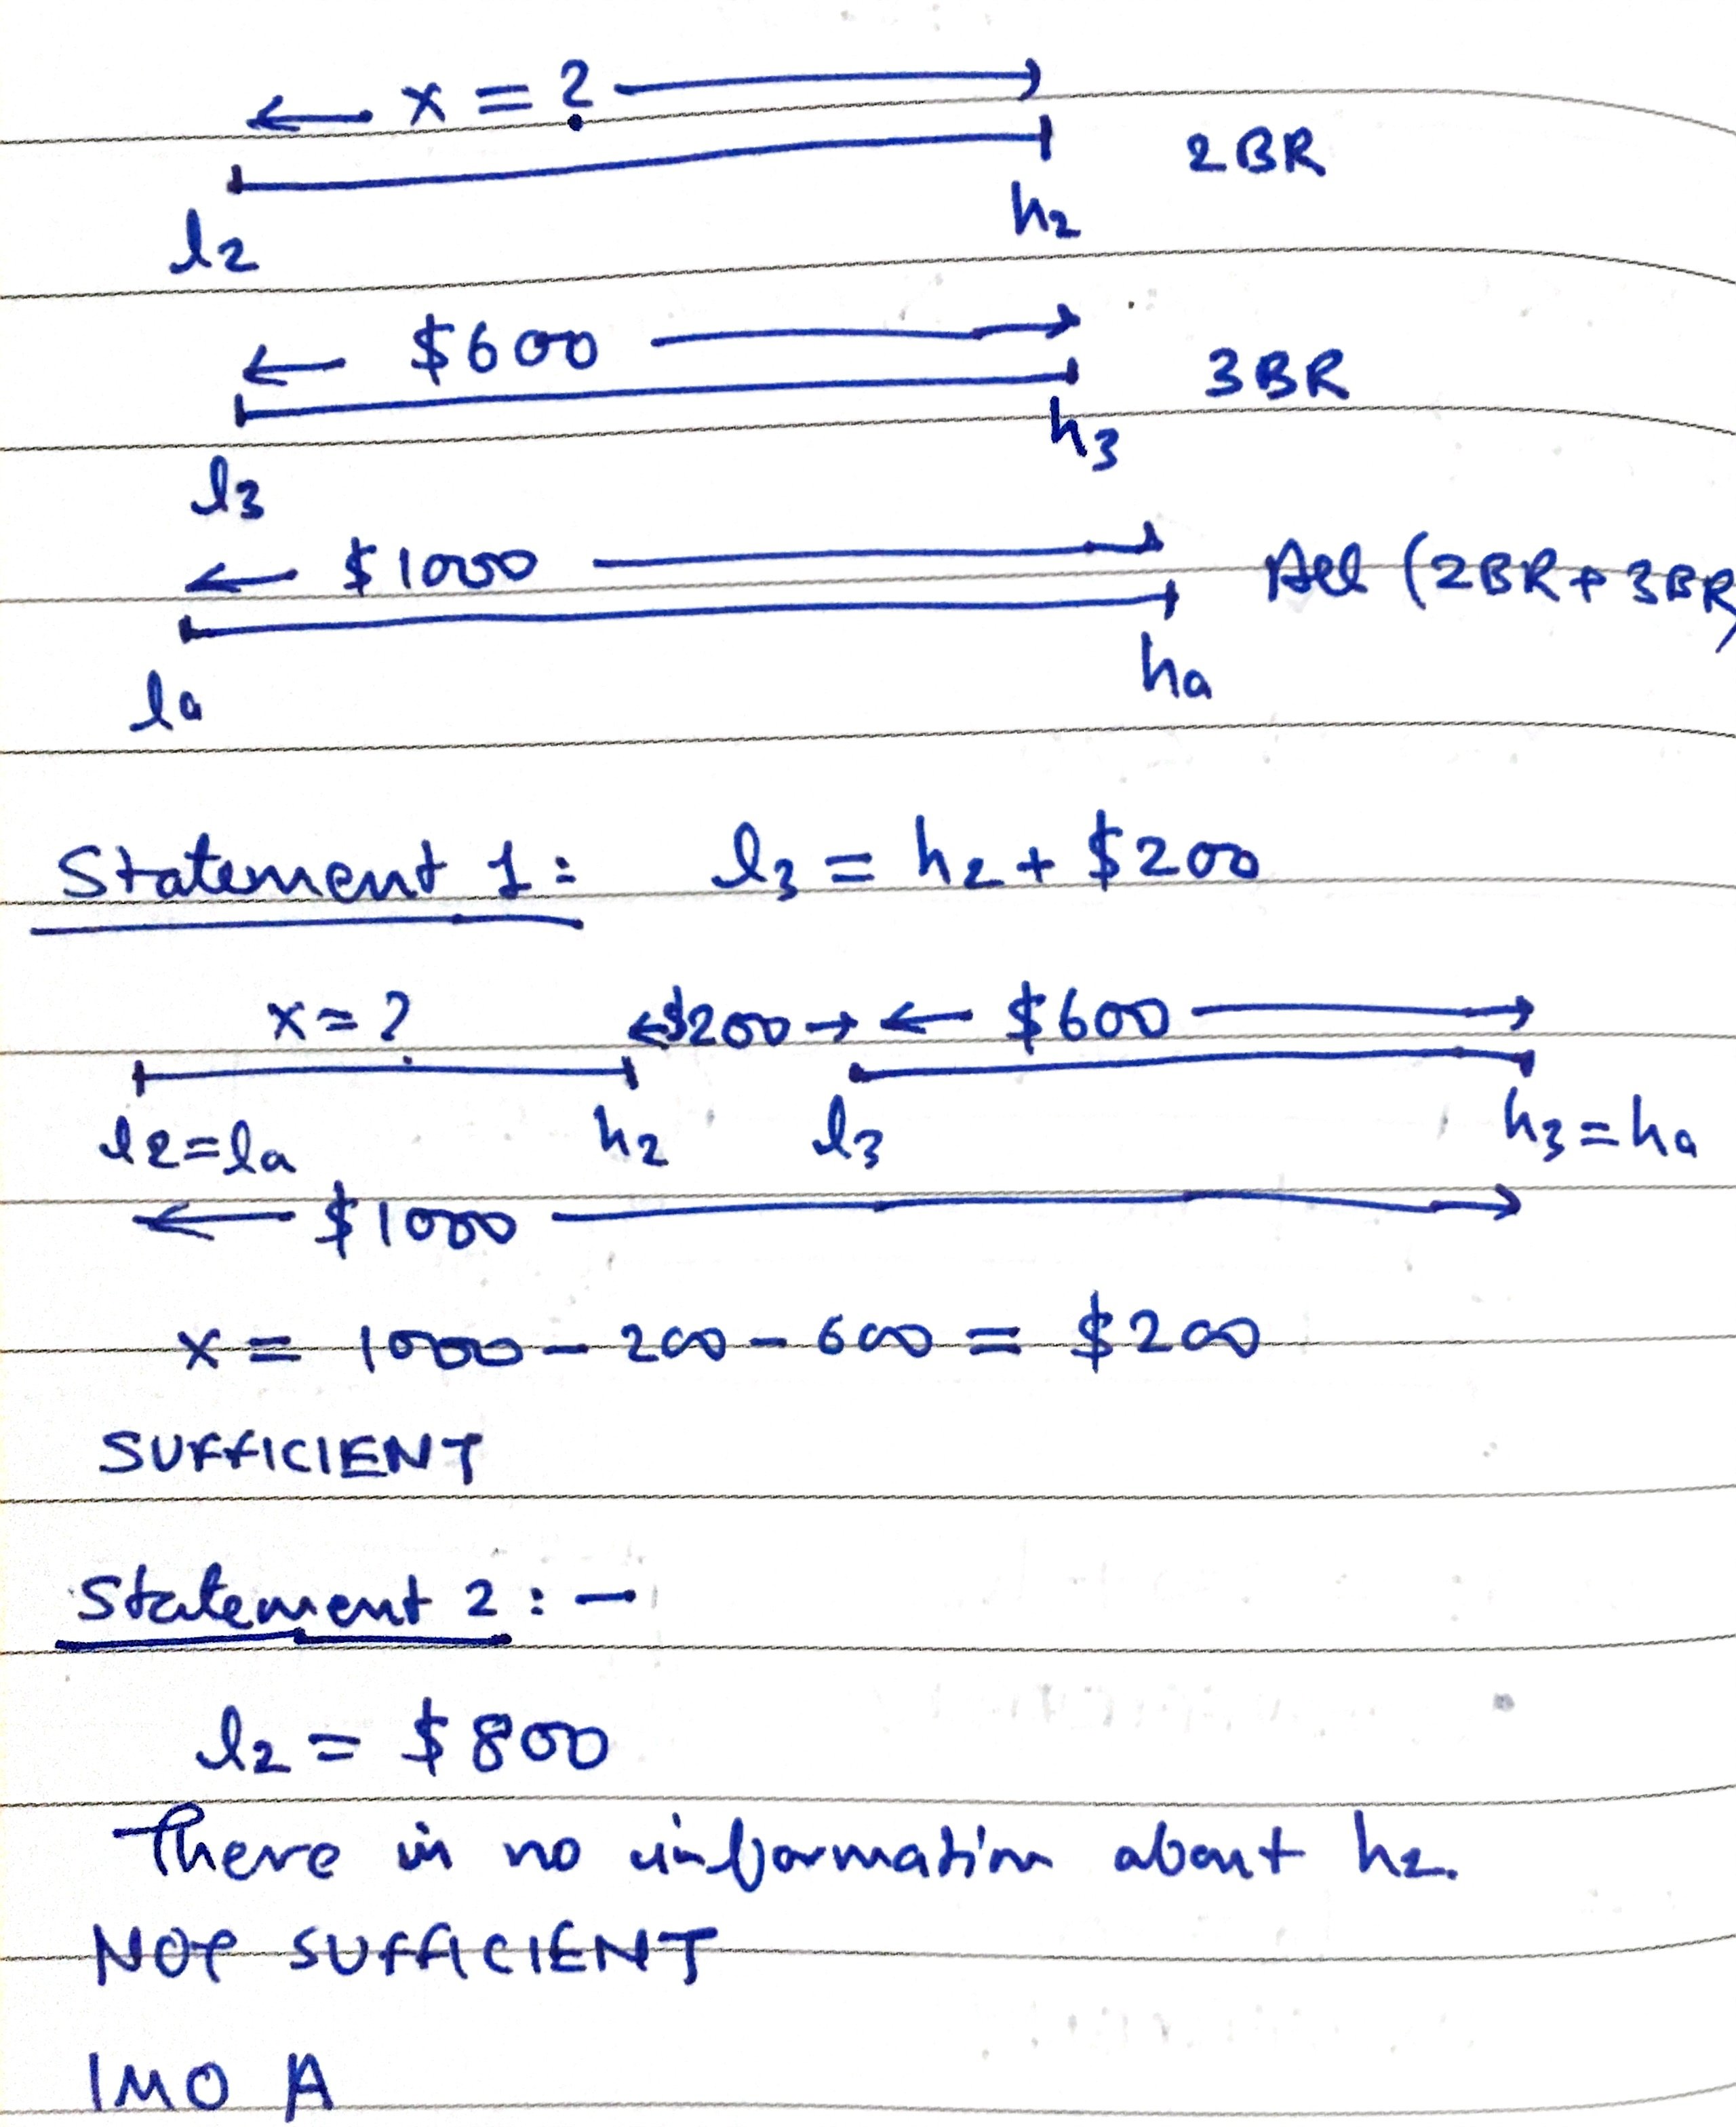 x = ?
2BR
l2 h2
$600
3BR
l3 h3
$1000 All (2BR + 3BR)
la ha
Statement 1: l3 = h2 + $200
x = ? $200 $600
l2=la h2 l3 h3=ha
$1000
x = 1000 - 200 - 600 = $200
SUFFICIENT
Statement 2: -
l2 = $800
There is no information about h2.
NOT SUFFICIENT
IMO A